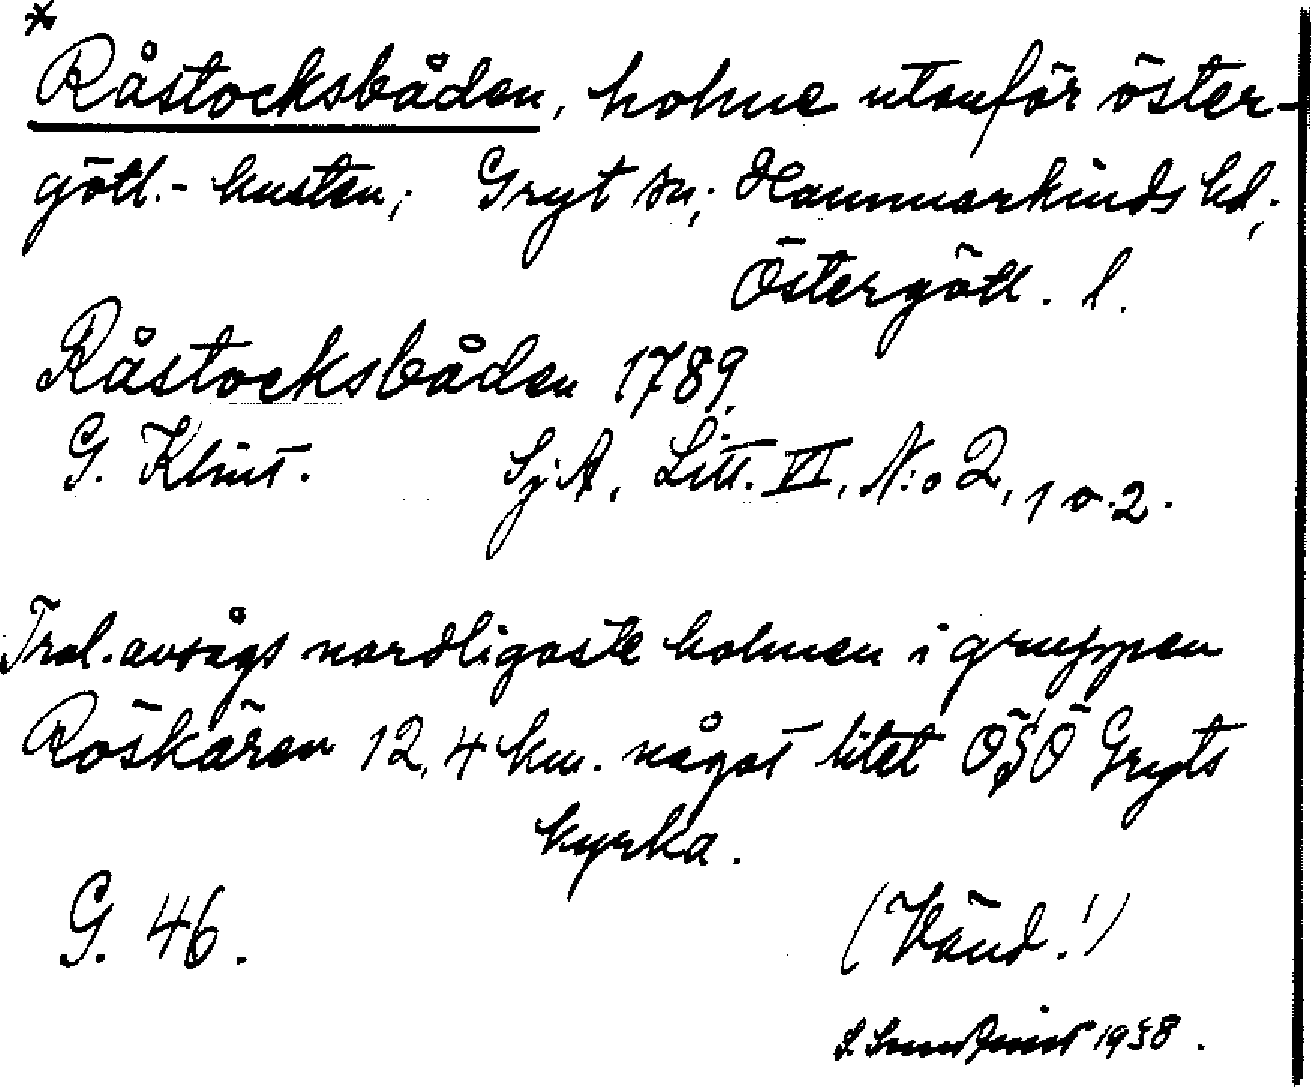 *
Råstocksbåden, holme utanför öster-
götl.-kusten; Gryt sn; Hammarkinds hd;
Östergötl. l.
Råstocksbåden 1789.
G. Klint. SjA, Litt. VI, N:o 2, 1 o. 2.
Trol. avsågs nordligaste holmen i gruppen
Röskären 12,4 km. något litet ÖSÖ Gryts
kyrka.
G. 46.
(Vänd!)
S. 1958.